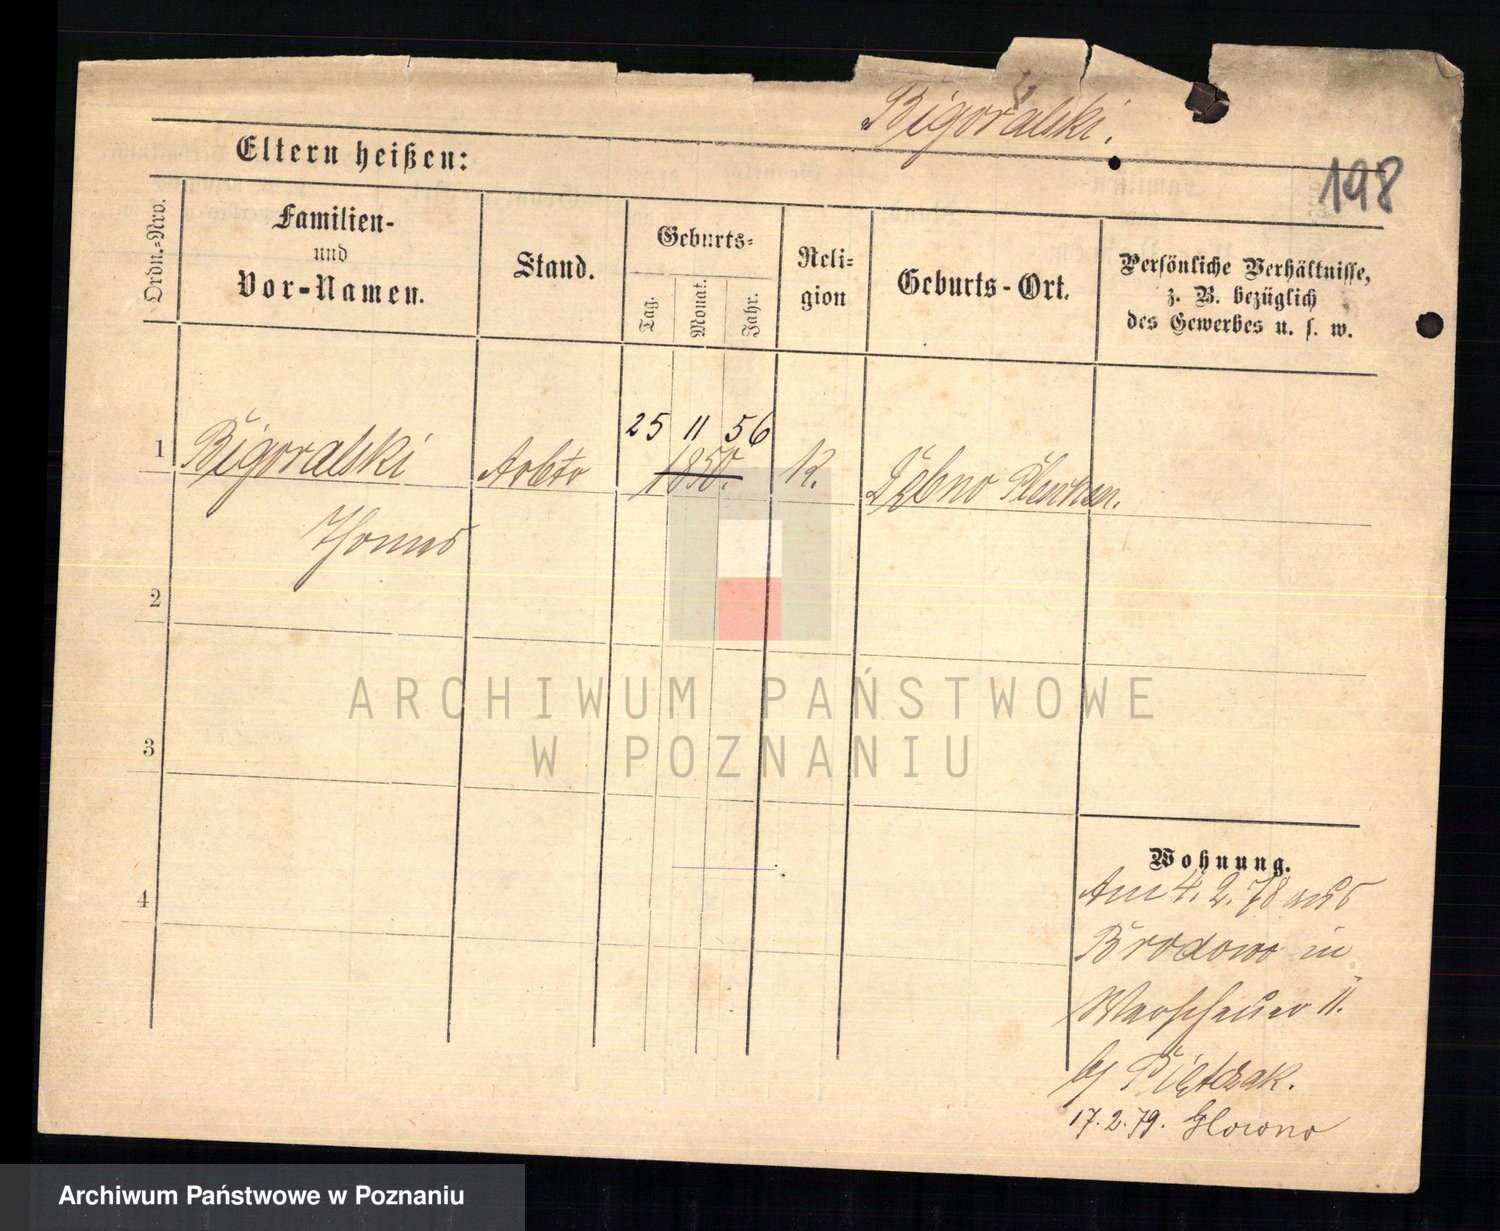 Bigoralski.
198
Eltern heißen:
Ordn.=Nro.
Familien-
und
Vor-Namen.
Stand.
Geburts=
Tag.
Monat.
Jahr.
Reli=
gion
Geburts-Ort.
Persönliche Verhältnisse,
z. B. bezüglich
des Gewerbes u. s. w.
25 11 56
1 Bigoralski Arbtr 1850. K. Dębno
Thomas
2
3
4
Wohnung.
Am 4. 2. 78 aus
Brodowo in
Warschauer 11.
b/ Piętczak.
17. 2. 79. Glowno
ARCHIWUM PAŃSTWOWE
W POZNANIU
Archiwum Państwowe w Poznaniu